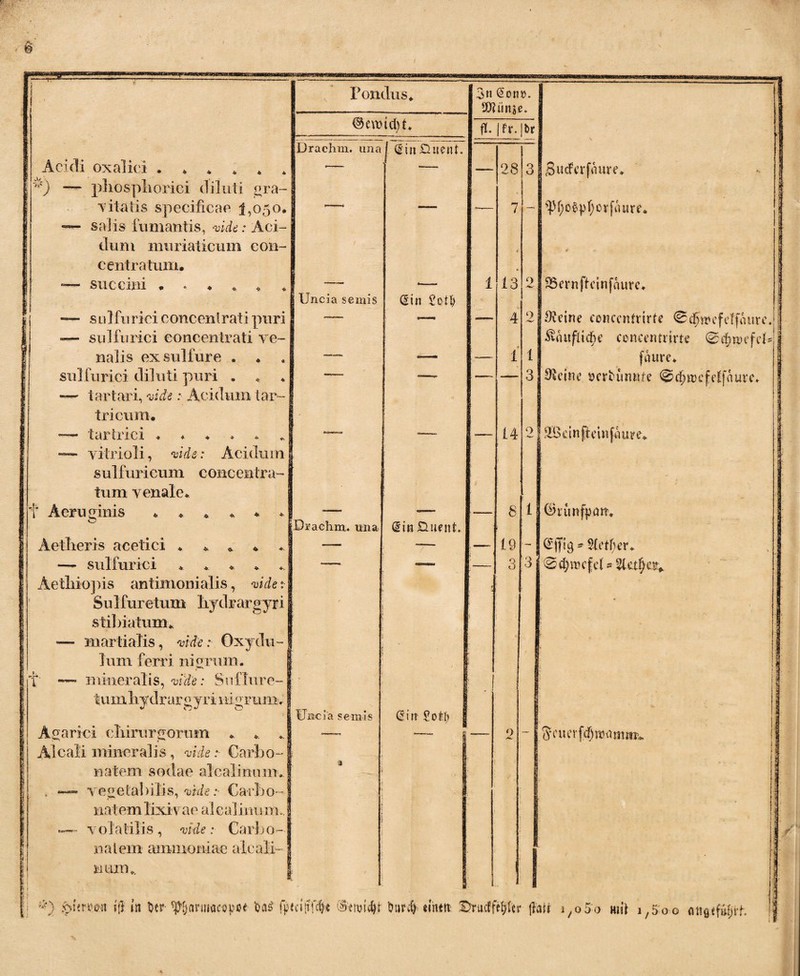 6
Pondus.
In Conv.
Münze.
Gewicht.
fl. | kr. | dr
Drachm. una Ein Quent.
Acidi oxalici . . . . . . — — — 28 3 Zuckersäure.
*) — phosphorici diluti gra-
vitatis specificae 1,050. — — — 7 – Phosphorsäure.
— salis fumantis, vide: Aci-
dum muriaticum con-
centratum.
— succini . . . . . . — — 1 13 2 Bernsteinsäure.
Uncia semis Ein Loth
— sulfurici concentrati puri — — — 4 2 Reine concentrirte Schwefelsäure.
— sulfurici concentrati ve- Käufliche concentrirte Schwefel=
nalis ex sulfure . . . — — — 1 1 säure.
sulfurici diluti puri . . . — — — — 3 Reine verdünnte Schwefelsäure.
— tartari, vide: Acidum tar-
tricum.
— tartrici . . . . . . — — — 14 2 Weinsteinsäure.
— vitrioli, vide: Acidum
sulfuricum concentra-
tum venale.
† Aeruginis . . . . . . — — — 8 1 Grünspan.
Drachm. una Ein Quent.
Aetheris acetici . . . . . — — — 19 – Essig=Aether.
— sulfurici . . . . . — — — 3 3 Schwefel=Aether.
Aethiopis antimonialis, vide:
Sulfuretum hydrargyri
stibiatum.
— martialis, vide: Oxydu-
lum ferri nigrum.
† — mineralis, vide: Sulfure-
tum hydrargyri nigrum.
Uncia semis Ein Loth
Agarici chirurgorum . . . — — — 2 – Feuerschwamm.
Alcali mineralis, vide: Carbo-
natem sodae alcalinum.
— vegetabilis, vide: Carbo-
natem lixivae alcalinum.
— volatilis, vide: Carbo-
natem ammoniae alcali-
num.
*) Hiervon ist in der Pharmacopoe das specifische Gewicht durch einen Druckfehler statt 1,050 mit 1,500 angeführt.